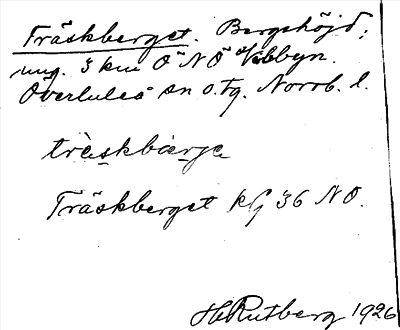 Träskberget. Bergshöjd;
ung. 3 km ÖNÖ Vebbyn.
Överluleå sn o. tg. Norrb. l.
träskbärge
Träskberget kbj 36 NO.
H Rutberg 1926